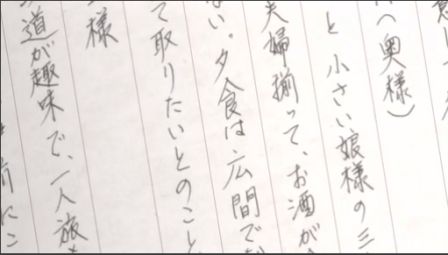 （奥様）
と小さい娘様の三
夫婦揃って、お酒が
ない。夕食は、広間で
て取りたいとのこと
様
道が趣味で、一人旅